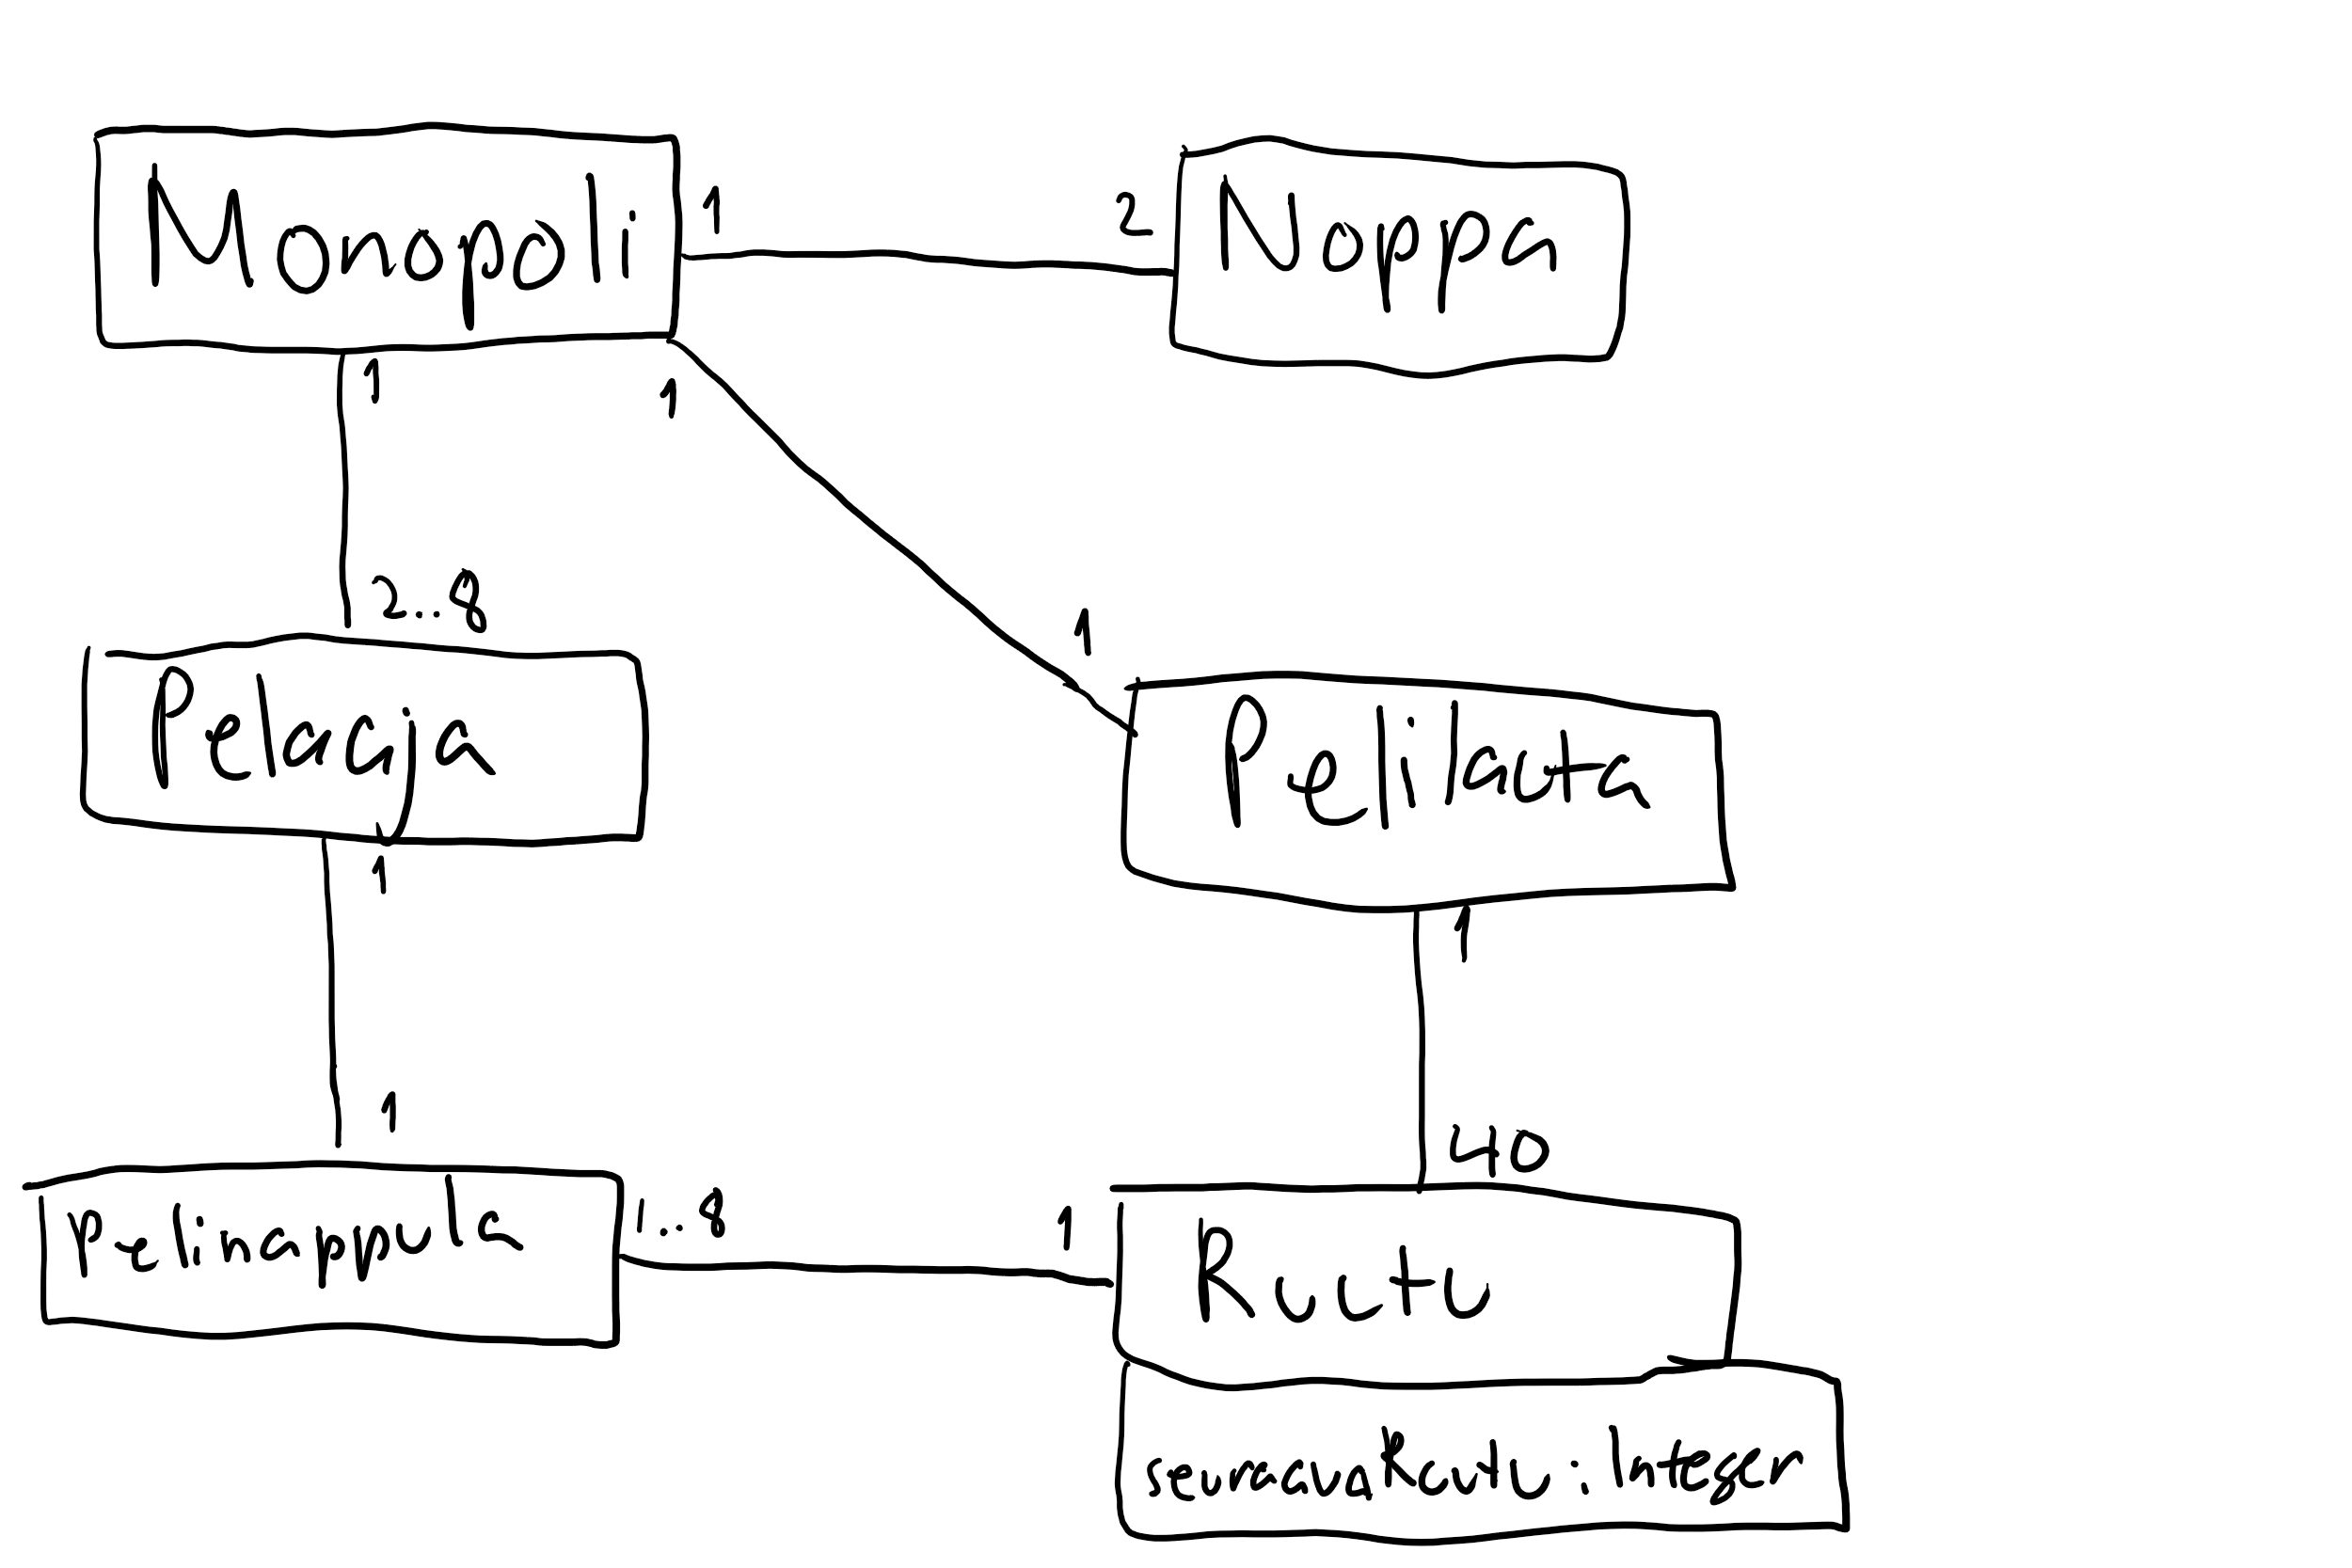 Monopoli
1
2
Noppa
1
1
2..8
1
Pelaaja
Pelilauta
1
1
1
40
Pelinappula
1..8
1
Ruutu
seuraavaRuutu: Integer